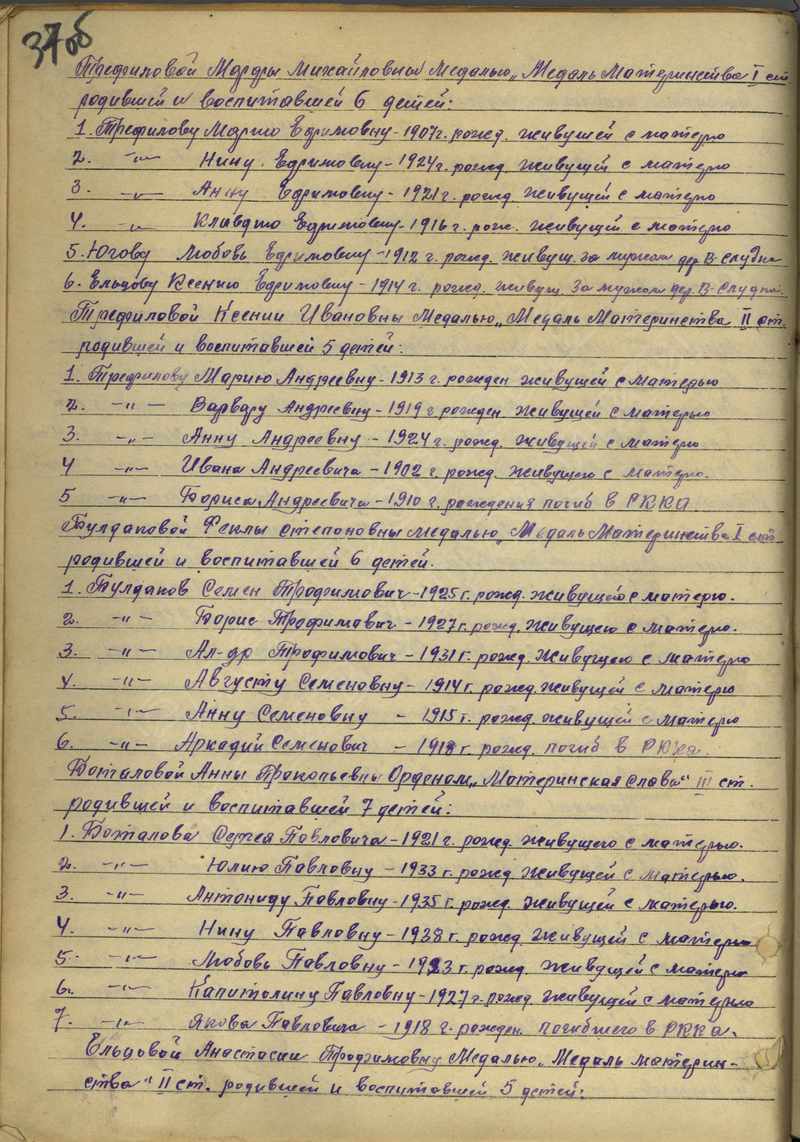 37об
Трефиловой Марфы Михайловны Медалью „Медаль Материнства I ст.
родившей и воспитавшей 6 детей:
1. Трефилову Марию Ефимовну - 1907 г. рожд. живущей с матерю
2. -"- Нину Ефимовну - 1924 г. рожд. живущей с матерю
3. -"- Анну Ефимовну - 1921 г. рожд. живущей с матерю
4. -"- Клавдию Ефимовну - 1916 г. рож. живущей с матерю
5. Югову Любовь Ефимовну - 1912 г. рожд. живущ. за мужом дер. В-Слудка
6. Ельцову Ксению Ефимовну - 1914 г. рожд. живущ. за мужом дер. В-Слудка
Трефиловой Ксении Ивановны Медалью „Медаль Материнства II ст.
родившей и воспитавшей 5 детей:
1. Трефилову Марию Андреевну - 1913 г. рожден живущей с матерью
2. -"- Варвару Андреевну - 1919 г рожден живущей с матерью
3. -"- Анну Андреевну - 1924 г. рожд. живущей с матерю
4 -"- Ивана Андреевича - 1902 г. рожд. живущего с матерю.
5 -"- Бориса Андреевича - 1910 г. рождения погиб в РККА
Тулдаковой Феклы Степановны медалью „Медаль Материнства I ст
родившей и воспитавшей 6 детей.
1. Тулдаков Семен Трофимович - 1925 г. рожд. живущего с матерю.
2. -"- Борис Трофимович - 1927 г. рожд. живущего с матерю.
3. -"- Ал-др Трофимович - 1931 г. рожд. живущего с матерю
4. -"- Августу Семеновну - 1914 г. рожд. живущей с матерю
5. -"- Анну Семеновну - 1915 г. рожд. живущей с матерю
6. -"- Аркадий Семенович - 1918 г. рожд. погиб в РККА.
Боталовой Анны Прокопьевны Орденом „Материнская слава" III ст.
родившей и воспитавшей 7 детей:
1. Боталова Сергея Павловича - 1921 г. рожд. живущего с матерью.
2. -"- Юлию Павловну - 1933 г. рожд. живущей с матерью.
3. -"- Антониду Павловну - 1935 г. рожд. живущей с матерью.
4. -"- Нину Павловну - 1938 г. рожд. живущей с матерю
5. -"- Любовь Павловну - 1923 г. рожд. живущей с матерю
6. -"- Капитолину Павловну - 1927 г. рожд. живущей с матерью
7. -"- Якова Павловича - 1918 г. рожден. погибшего в РККА.
Ельцовой Анастасии Трофимовну Медалью „Медаль материн-
ства" II ст. родившей и воспитавшей 5 детей: